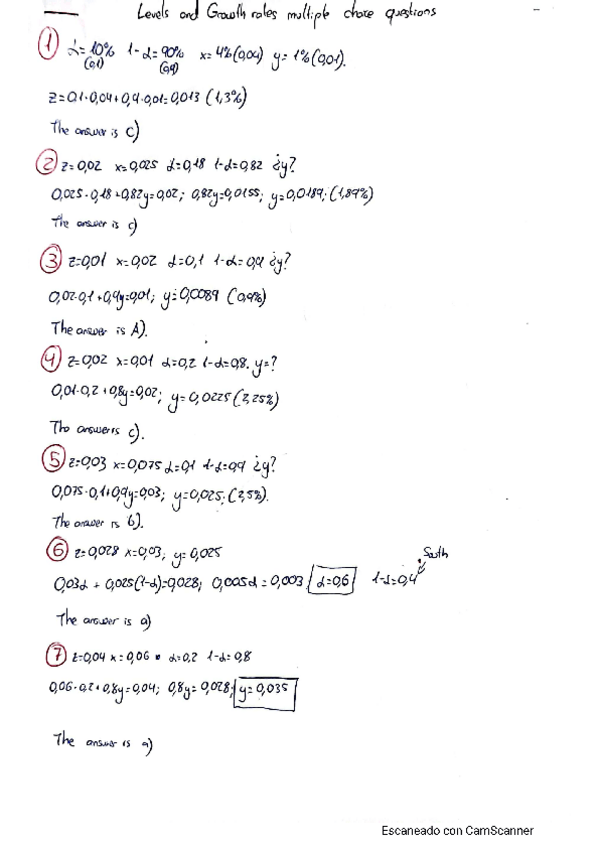 Levels and Growth rates multiple choice questions
1 α=10% 1-α=90% x=4%(0,04) y=1%(0,01).
(0,1) (0,9)
z=0,1·0,04+0,9·0,01=0,013 (1,3%)
The answer is c)
2 z=0,02 x=0,025 α=0,18 1-α=0,82 ¿y?
0,025·0,18+0,82y=0,02; 0,82y=0,0155; y=0,0189; (1,89%)
The answer is c)
3 z=0,01 x=0,02 α=0,1 1-α=0,9 ¿y?
0,02·0,1+0,9y=0,01; y=0,0089 (0,9%)
The answer is A).
4 z=0,02 x=0,01 α=0,2 1-α=0,8. y=?
0,01·0,2+0,8y=0,02; y=0,0225 (2,25%)
The answer is c).
5 z=0,03 x=0,075 α=0,1 1-α=0,9 ¿y?
0,075·0,1+0,9y=0,03; y=0,025; (2,5%).
The answer is b).
6 z=0,028 x=0,03; y=0,025
South
0,03α + 0,025(1-α)=0,028; 0,005α=0,003 α=0,6 1-α=0,4
The answer is a)
7 z=0,04 x=0,06 α=0,2 1-α=0,8
0,06·0,2+0,8y=0,04; 0,8y=0,028; y=0,035
The answer is a)
Escaneado con CamScanner